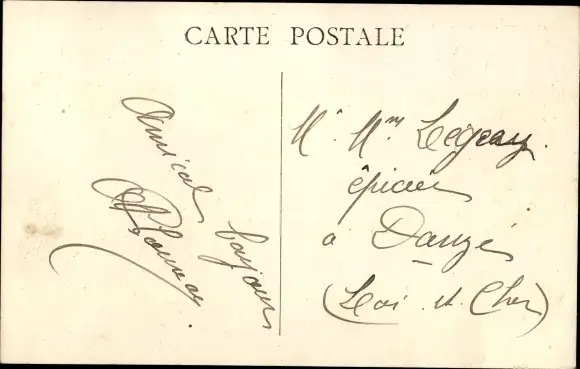 CARTE POSTALE
Amical bonjour
Mr Mme Legeay
épicier
à Danzé
(Loir et Cher)